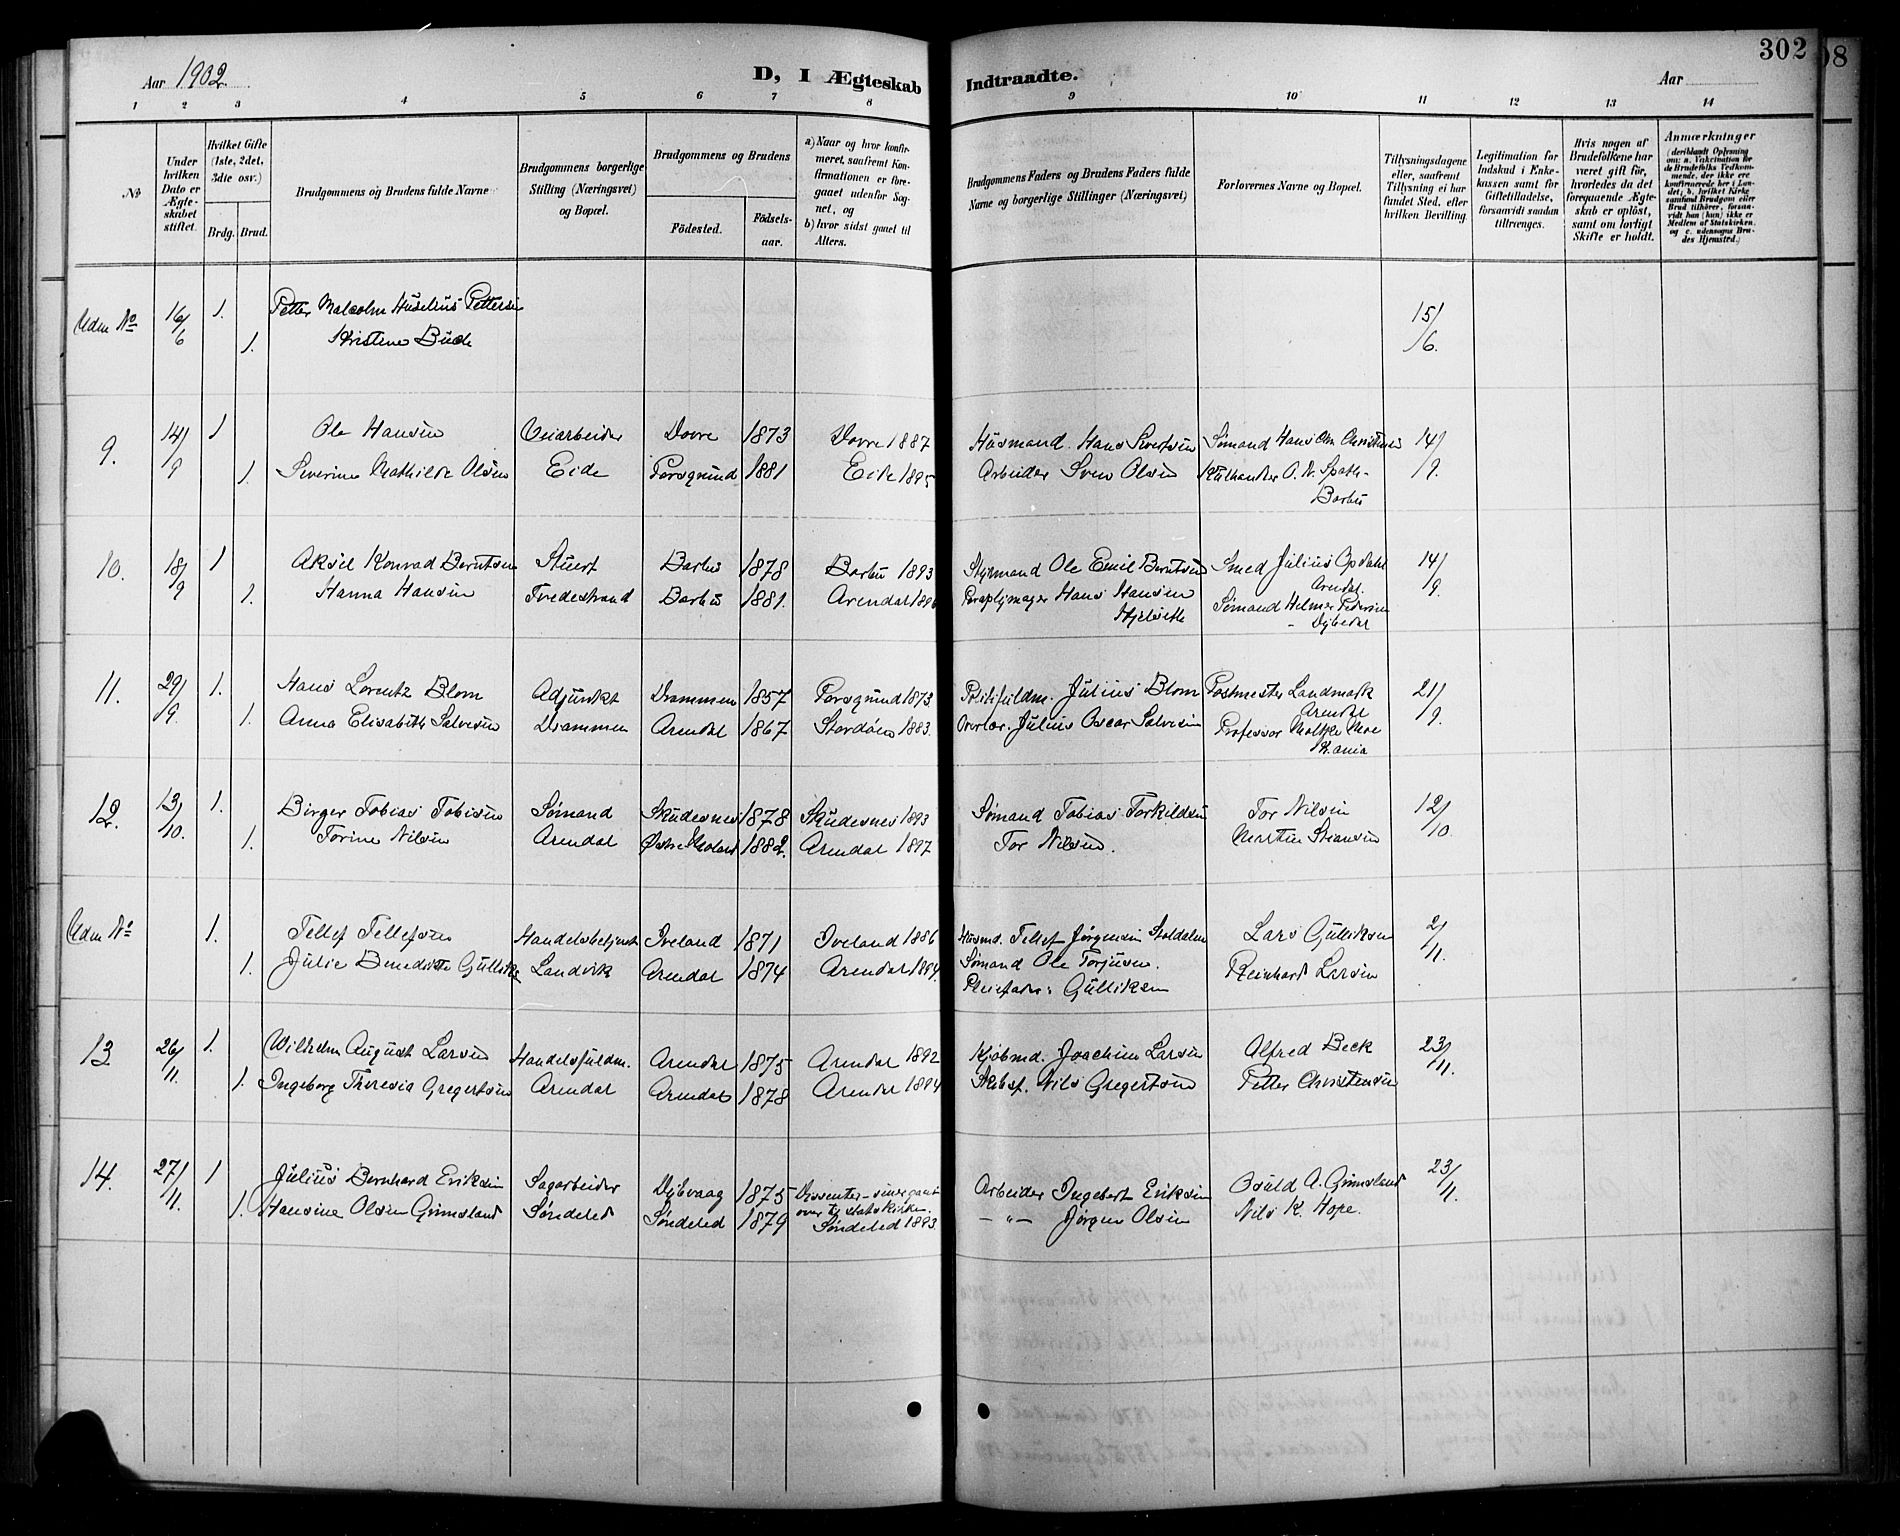 302
Aar 1902.
D, I Ægteskab Indtraadte.
Aar
1 2 3 4 5 6 7 8 9 10 11 12 13 14
No
Under hvilken Dato er Ægteskabet stiftet.
Hvilket Gifte (1ste, 2det, 3die osv.)
Brdg. Brud.
Brudgommens og Brudens fulde Navne
Brudgommens borgerlige Stilling (Næringsvei) og Bopæl.
Brudgommens og Brudens
Födested.
Födselsaar.
a) Naar og hvor konfirmeret, saafremt Konfirmationen er foregaaet udenfor Sognet, og
b) hvor sidst gaaet til Alters.
Brudgommens Faders og Brudens Faders fulde Navne og borgerlige Stillinger (Næringsvei)
Forlovernes Navne og Bopæl.
Tillysningsdagene eller, saafremt Tillysning ei har fundet Sted, efter hvilken Bevilling.
Legitimation for Indskud i Enkekassen samt for Giftetilladelse, forsaavidt saadan tiltrænges.
Hvis nogen af Brudefolkene har været gift för, hvorledes da det foregaaende Ægteskab er oplöst, samt om lovligt Skifte er holdt.
Anmærkninger (deriblandt Oplysning om: a. Vakcination for de Brudefolks Vedkommende, der ikke ere konfirmerede her i Landet; b. hvilket Kirkesamfund Brudgom eller Brud tilhörer, forsaavidt han (hun) ikke er Medlem af Statskirken, og c. udensogns Brudes Hjemsted.)
Uden No 16/6 1. Petter Malcolm Huselius Pettersen 15/6.
1. Kristine Bude
9. 14/9 1 Ole Hansen Veiarbeider Dovre 1873 Dovre 1887 Husmand. Hans Sivertsen Sømand Hans Chr. Christensen 14/9.
1. Severine Mathilde Olsen Eide Porsgrund 1881 Eide 1895 Arbeider Sven Olsen Kulhandler O. N. Spoth-
Barbu
10. 18/9 1 Aksel Konrad Berntsen Stuert Barbu 1878 Barbu 1893 Styrmand Ole Emil Berntsen Smed Julius Opdahl 14/9.
Arendal.
1. Hanna Hansen Tvedestrand Barbu 1881. Arendal Paraplymager Hans Hansen Sømand Helmer Pedersen
- Dybedal
11. 29/9 1. Hans Lorentz Blom Adjunkt Drammen 1857 Porsgrund 1873 Politifuldm. Julius Blom Postmester Landmark 21/9.
Arendal
1. Anna Elisabeth Salvesen Drammen Arendal 1867 Stordøen 1883. Overlær. Julius Oscar Salvesen Professor Moltke Moe
Kr.ania
12. 13/10. 1. Birger Tobias Tobisen Sømand Skudesnes 1878 Skudesnes 1893 Sømand Tobias Torkildsen Tor Nilsen 12/10.
1. Torine Nilsen Arendal Østre Moland 1882. Arendal 1897 Tor Nilsen. Martin Steansen
Uden No 1. Tellef Tellefsen Handelsbetjent Iveland 1871 Iveland 1886 Husmd. Tellef Jørgensen Stoldalen Lars Gulliksen 2/11.
1. Julie Benedikte Gulliksen Landvik Arendal 1874 Arendal Sømand Ole Torjusen. Reinhard Larsen
Pleiefader: Gulliksen
13 26/11. 1. Wilhelm August Larsen Handelsfuldm. Arendal 1875 Arendal 1892 Kjøbmd. Joachim Larsen Alfred Beck 23/11.
1. Ingeborg Theresia Gregertsen Arendal Arendal 1878 Arendal 1894 Skibsf. Nils Gregertsen Petter Christensen
14. 27/11. 1 Julius Bernhard Eriksen Sagarbeider Dybvaag 1875 Dissenter - senere gaaet Arbeider Ingebert Eriksen Osuld A. Grimsland 23/11.
over til statskirken.
1. Hansine Olsen Grimsland Søndeled Søndeled 1879 Søndeled 1893. - " - Jørgen Olsen Nils K. Hope.